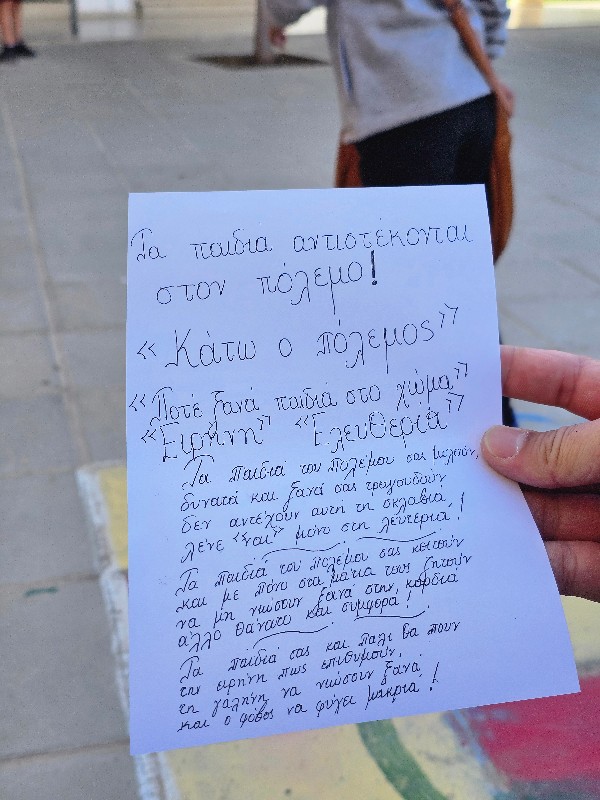 Τα παιδια αντιστέκονται
στον πόλεμο!
«Κάτω ο πόλεμος»
«Ποτέ ξανά παιδιά στο χώμα»
«Ειρήνη» «Ελευθερία»
Τα παιδιά του πολέμου σας μιλούν,
δυνατά και ξανά σας τραγουδούν
δεν αντέχουν αυτή τη σκλαβιά
λένε «ναι» μόνο στη λευτεριά!
Τα παιδιά του πολέμου σας κοιτούν
και με πόνο στα μάτια τους ζητούν
να μη νιώσουν ξανά στην καρδιά
άλλο θάνατο και συμφορά!
Τα παιδιά σας και πάλι θα πουν
την ειρήνη πως επιθυμούν,
τη γαλήνη να νιώσουν ξανά
και ο φόβος να φύγει μακριά!